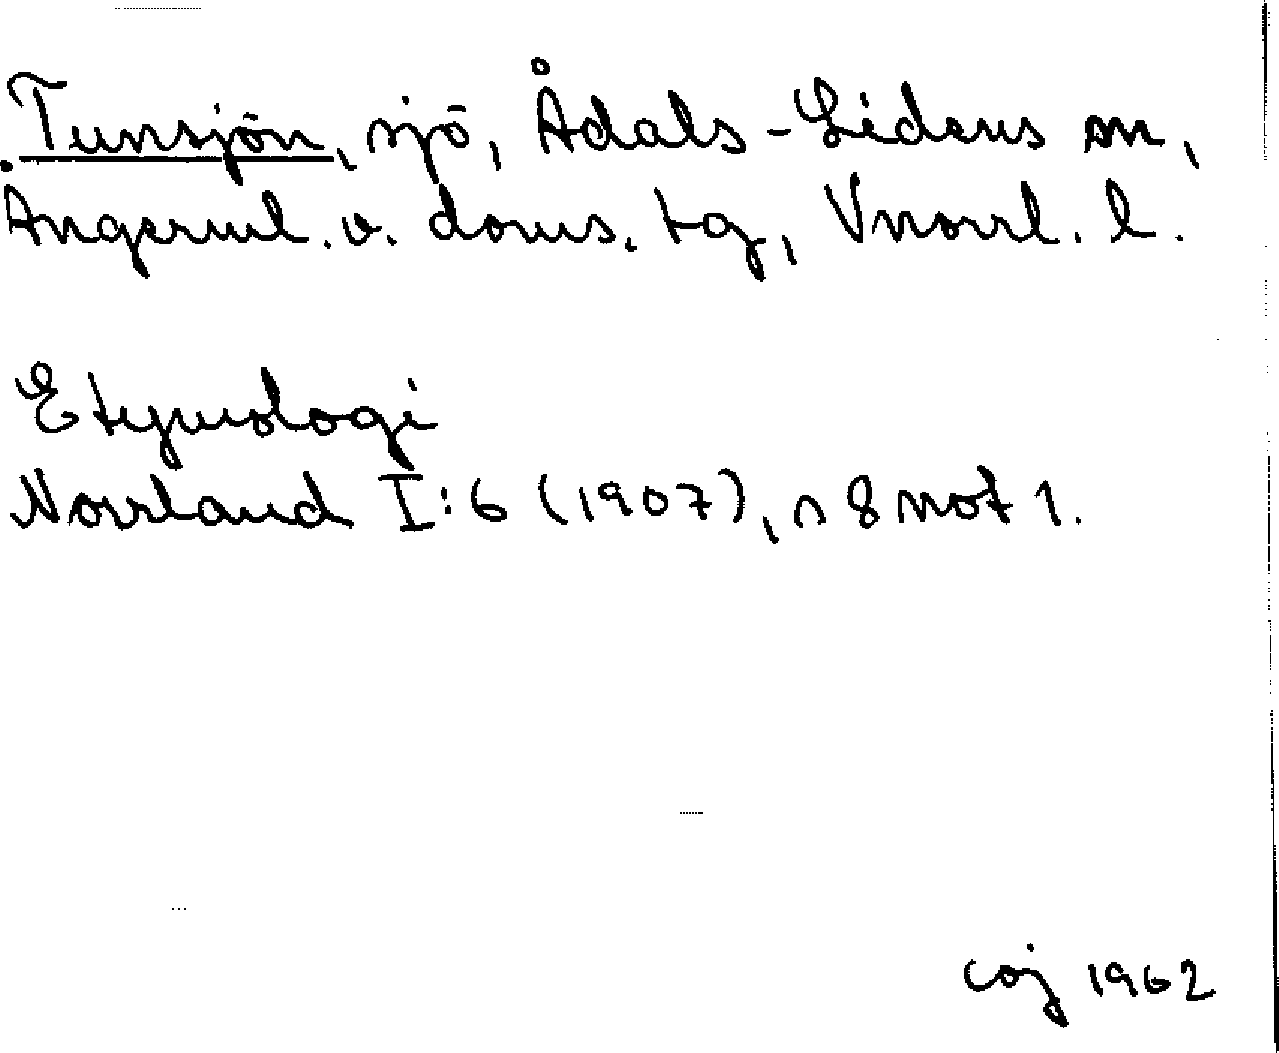 Tunsjön, sjö, Ådals-Lidens sn,
Ångerml. v. doms. tg, Vnorrl. l.
Etymologi
Norrland I:6 (1907), s 8 not 1.
coj 1962